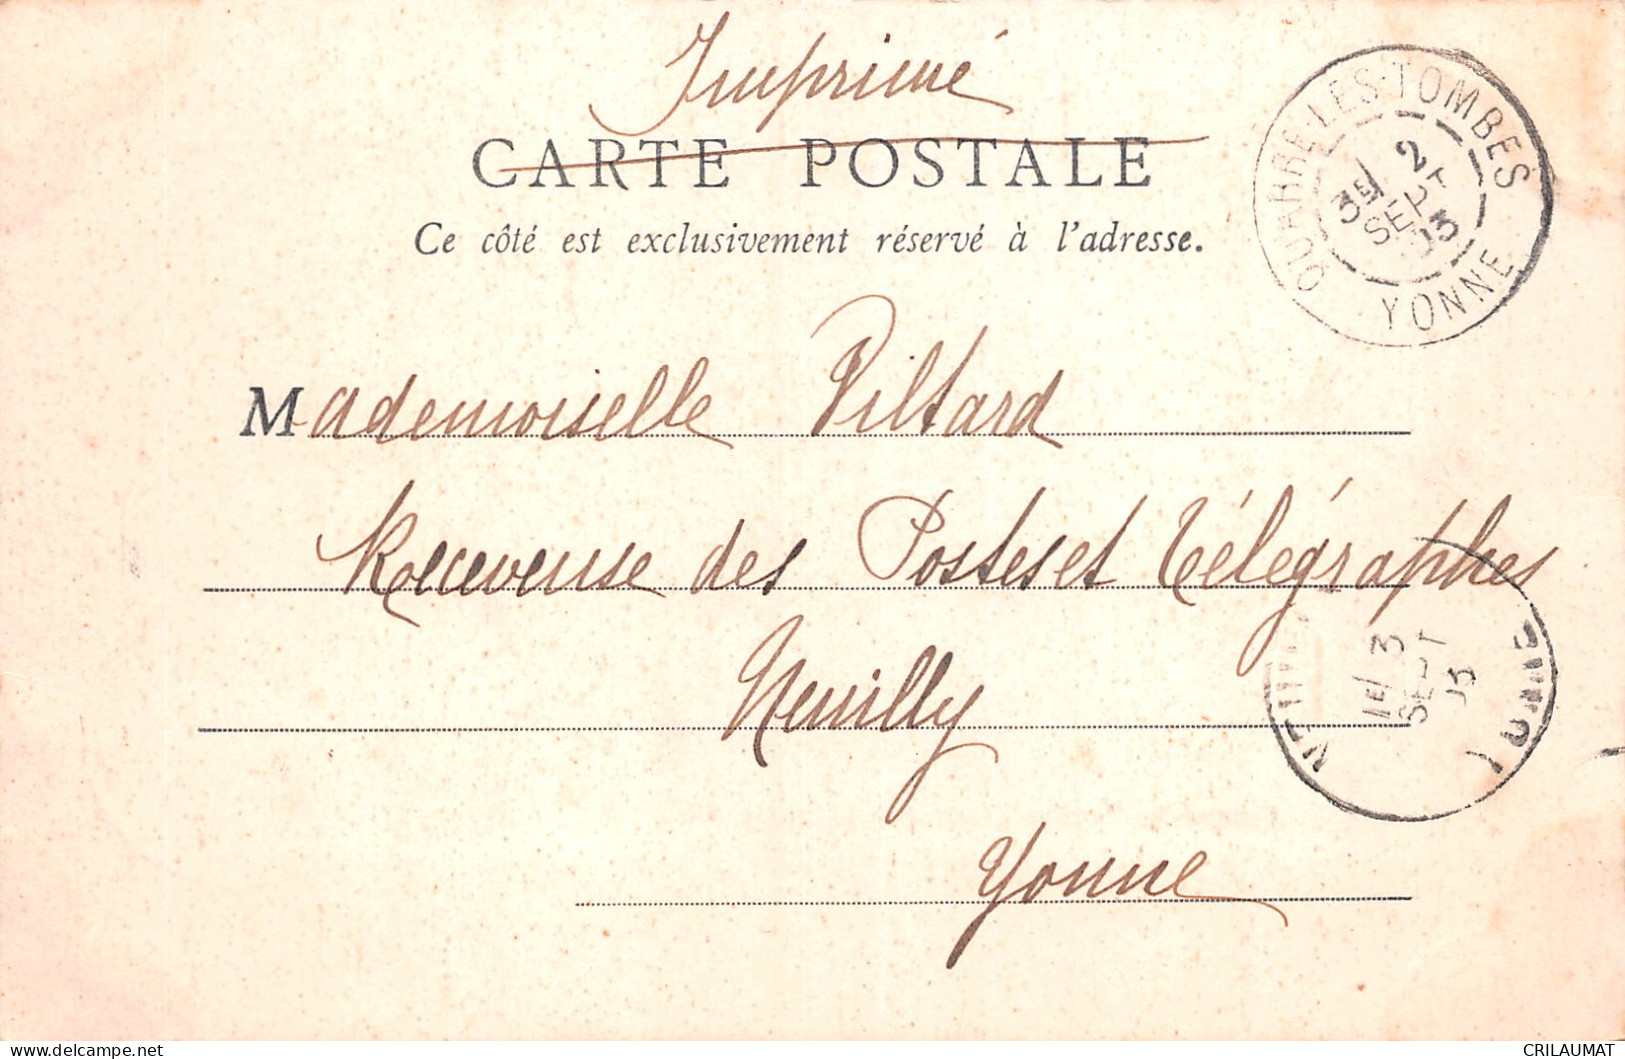 Imprimé
CARTE POSTALE
Ce côté est exclusivement réservé à l'adresse.
QUARRE-LES-TOMBES
3E/ 2
SEPT
03
YONNE
Mademoiselle Piltard
Receveuse des Postes et Télégraphes
Neuilly
Yonne
1E/ 3
SEPT
03
YONNE
www.delcampe.net
CRILAUMAT